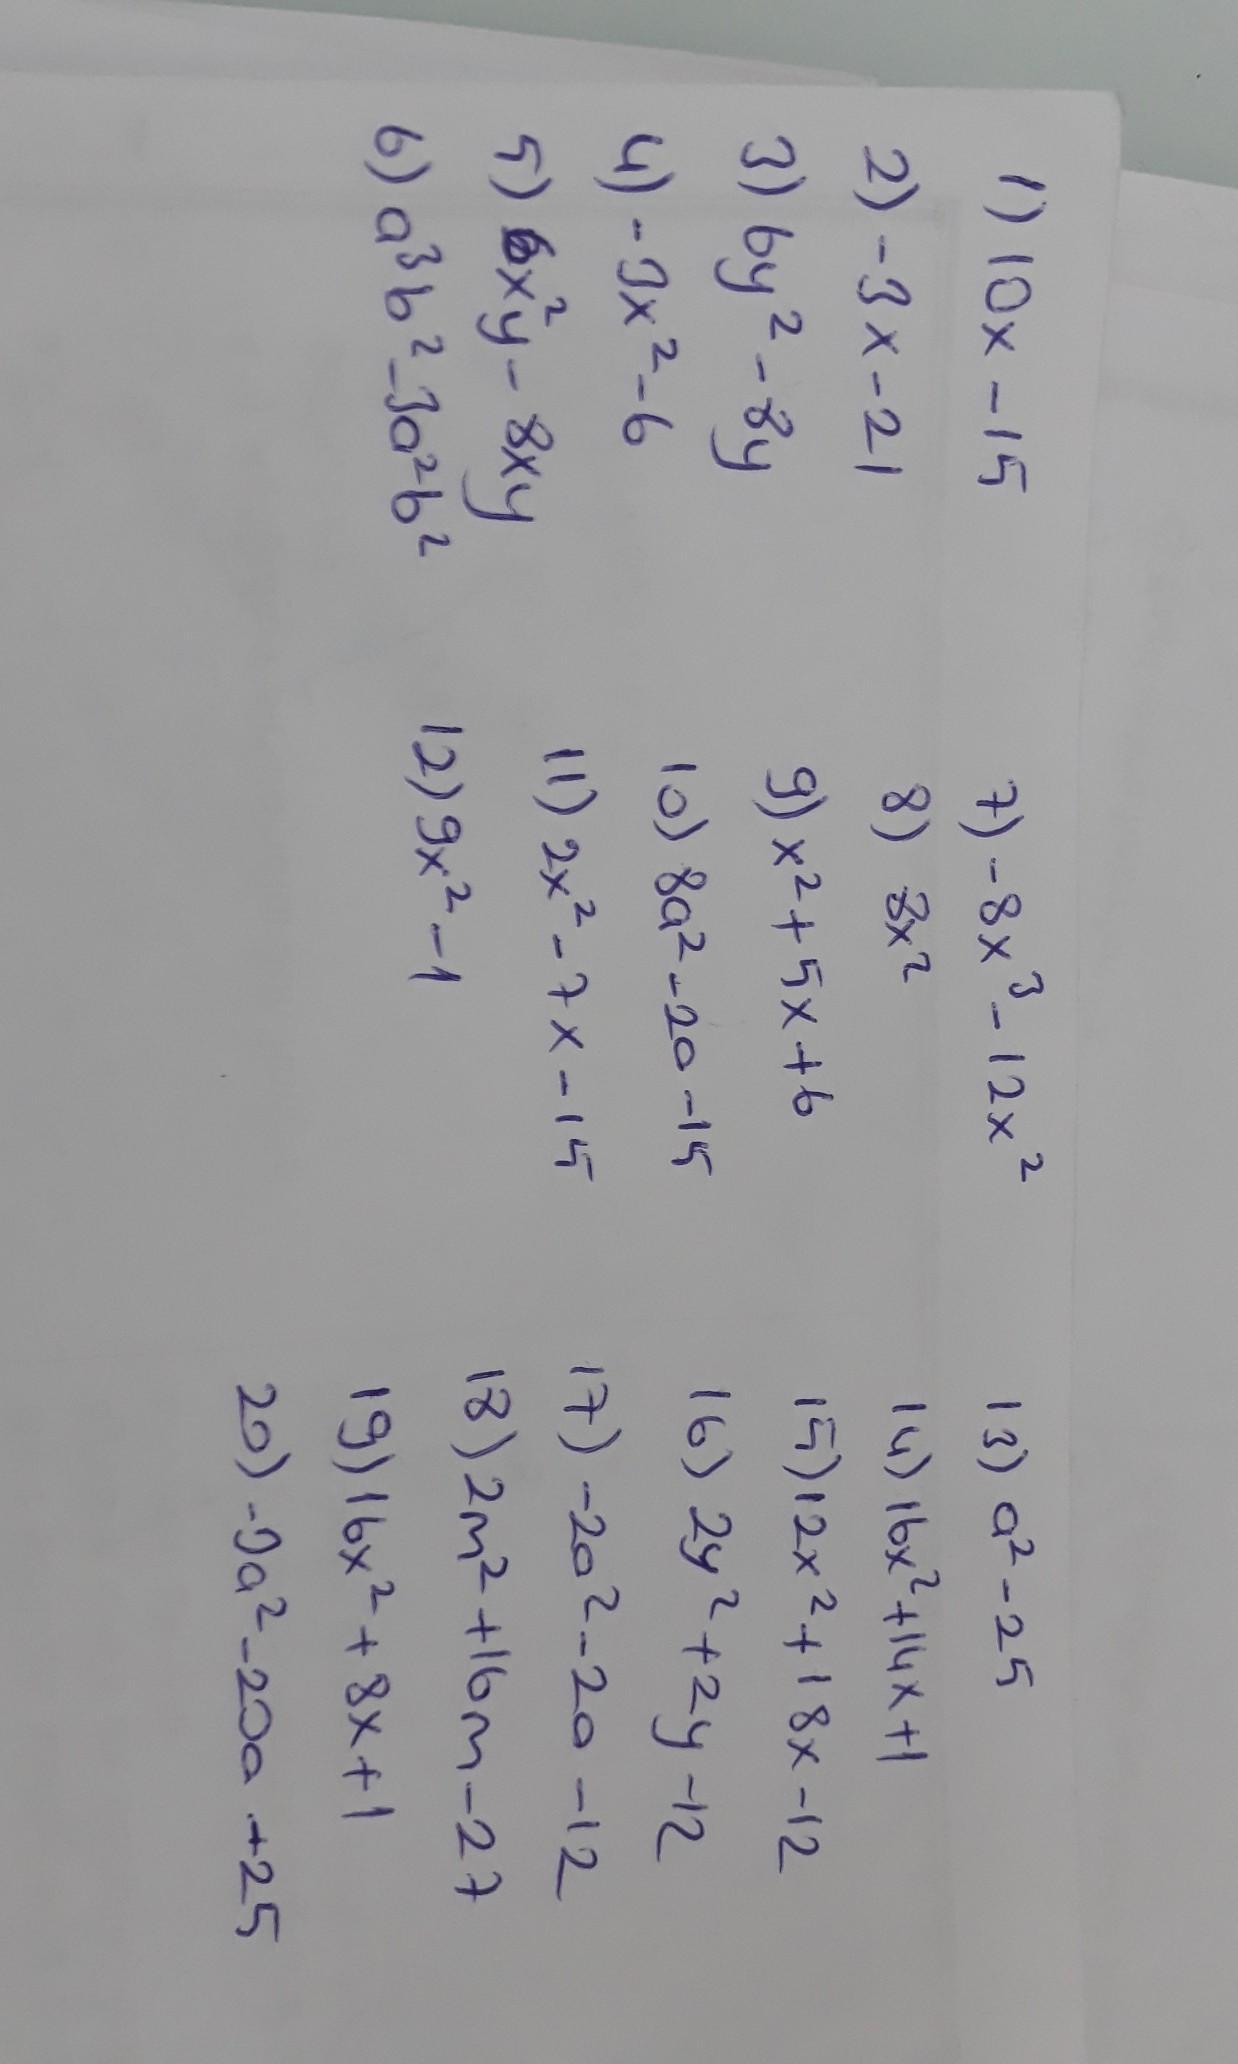 1) 10x - 15
2) -3x - 21
3) 6y² - 8y
4) -3x² - 6
5) 6x²y - 8xy
6) a³b² - 3a²b²
7) -8x³ - 12x²
8) 3x²
9) x² + 5x + 6
10) 8a² - 2a - 15
11) 2x² - 7x - 15
12) 9x² - 1
13) a² - 25
14) 16x² + 14x + 1
15) 12x² + 18x - 12
16) 2y² + 2y - 12
17) -2a² - 2a - 12
18) 2m² + 16m - 27
19) 16x² + 8x + 1
20) -3a² - 20a + 25